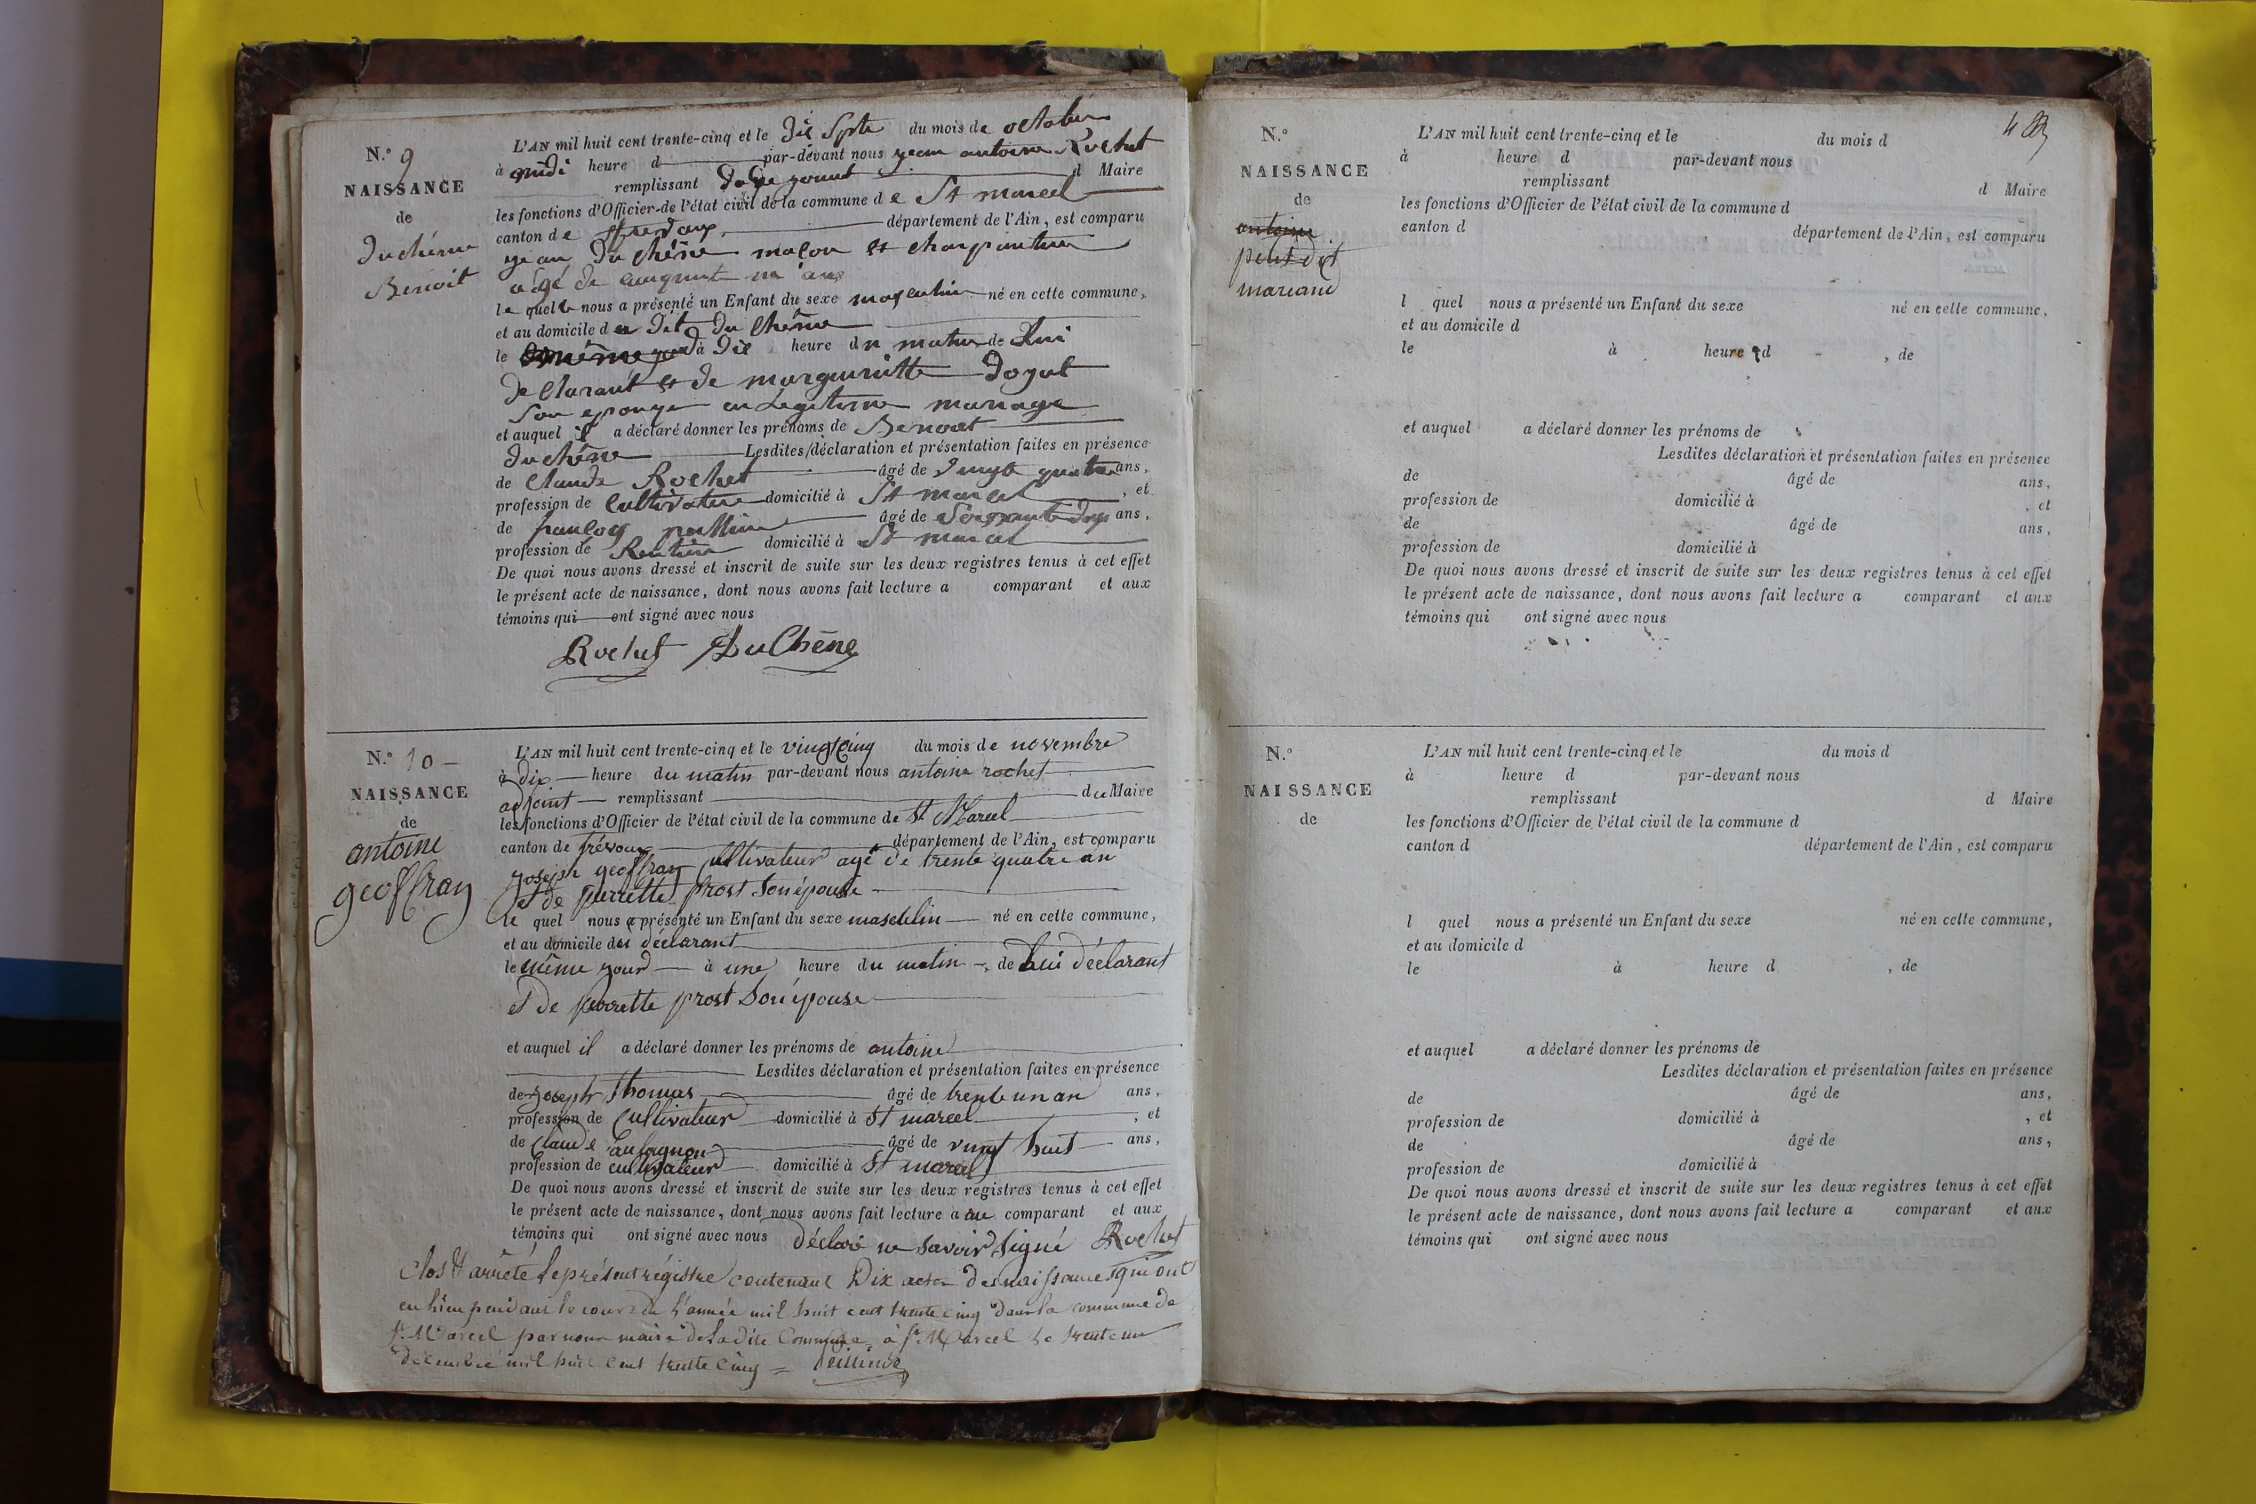 N.º 9
NAISSANCE
de
Duchéne
Benoit
L'AN mil huit cent trente-cinq et le Dix Spte du mois de octobre
à midi heure d par-devant nous jean antoine Rochet
remplissant d Maire
les fonctions d'Officier de l'état civil de la commune de St marcel
canton de département de l'Ain, est comparu
jean Du chéne maçon et charpantier
agé de
le quel nous a présenté un Enfant du sexe masculin né en cette commune,
et au domicile du Dit Du Chéne
le même jour à Dix heure du matin de Lui
declarant et de marguerite Doyat
Son epouze en Legitime mariage
et auquel il a déclaré donner les prénoms de Benoit
du chéne Lesdites déclaration et présentation faites en présence
de Claude Rochet âgé de vingt quatre ans,
profession de Cultivateur domicilié à St marcel , et
de âgé de ans,
profession de Rentier domicilié à St marcel
De quoi nous avons dressé et inscrit de suite sur les deux registres tenus à cet effet
le présent acte de naissance, dont nous avons fait lecture a comparant et aux
témoins qui ont signé avec nous
Rochet DuChêne
N.º 10
NAISSANCE
de
antoine
geoffray
L'AN mil huit cent trente-cinq et le vingt cinq du mois de novembre
à dix heure du matin par-devant nous antoine rochet
adjoint remplissant du Maire
les fonctions d'Officier de l'état civil de la commune de St Marcel
canton de trévoux département de l'Ain, est comparu
joseph geoffray Cultivateur agé de trente quatre an
et de pierrette prost son épouse
le quel nous a présenté un Enfant du sexe masculin né en cette commune,
et au domicile des déclarant
le même jour à une heure du matin, de Lui déclarant
et de pierrette prost son épouse
et auquel il a déclaré donner les prénoms de antoine
Lesdites déclaration et présentation faites en présence
de joseph thomas âgé de trente un an ans,
profession de Cultivateur domicilié à St marcel , et
de Claude âgé de vingt huit ans,
profession de cultivateur domicilié à St marcel
De quoi nous avons dressé et inscrit de suite sur les deux registres tenus à cet effet
le présent acte de naissance, dont nous avons fait lecture a au comparant et aux
témoins qui ont signé avec nous déclaré ne savoir signé Rochet
Clos & arrêté le présent régistre contenant Dix actes de naissances qui ont
eu lieu pendant le cours de l'année mil huit cent trente cinq dans la commune de
St Marcel par nous maire de la dite Commune, à St Marcel le trente un
décembre mil huit cent trente cinq =
N.º
NAISSANCE
de
antoine
petit dit
mariand
4
L'AN mil huit cent trente-cinq et le du mois d
à heure d par-devant nous
remplissant d Maire
les fonctions d'Officier de l'état civil de la commune d
canton d département de l'Ain, est comparu
l quel nous a présenté un Enfant du sexe né en cette commune,
et au domicile d
le à heure d , de
et auquel a déclaré donner les prénoms de
Lesdites déclaration et présentation faites en présence
de âgé de ans,
profession de domicilié à , et
de âgé de ans,
profession de domicilié à
De quoi nous avons dressé et inscrit de suite sur les deux registres tenus à cet effet
le présent acte de naissance, dont nous avons fait lecture a comparant et aux
témoins qui ont signé avec nous
N.º
NAISSANCE
de
L'AN mil huit cent trente-cinq et le du mois d
à heure d par-devant nous
remplissant d Maire
les fonctions d'Officier de l'état civil de la commune d
canton d département de l'Ain, est comparu
l quel nous a présenté un Enfant du sexe né en cette commune,
et au domicile d
le à heure d , de
et auquel a déclaré donner les prénoms de
Lesdites déclaration et présentation faites en présence
de âgé de ans,
profession de domicilié à , et
de âgé de ans,
profession de domicilié à
De quoi nous avons dressé et inscrit de suite sur les deux registres tenus à cet effet
le présent acte de naissance, dont nous avons fait lecture a comparant et aux
témoins qui ont signé avec nous